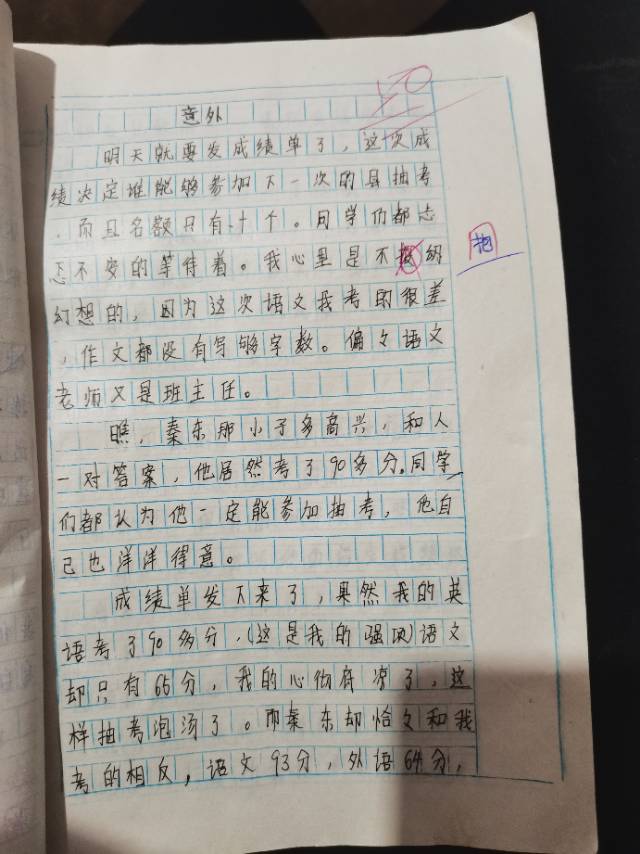 50
意外
明天就要发成绩单了，这次成
绩决定谁能够参加下一次的县抽考
，而且名额只有十个。同学们都忐
忑不安的等待着。我心里是不抱胡
抱
幻想的，因为这次语文我考的很差
，作文都没有写够字数。偏偏语文
老师又是班主任。
瞧，秦东那小子多高兴，和人
一对答案，他居然考了90多分，同学
们都认为他一定能参加抽考，他自
己也洋洋得意。
成绩单发下来了，果然我的英
语考了90多分，(这是我的强项)语文
却只有65分，我的心彻底凉了，这
样抽考泡汤了。而秦东却恰文和我
考的相反，语文93分，外语64分，